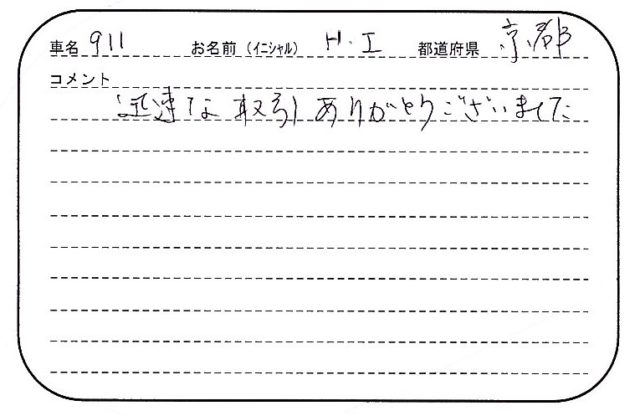 車名 911 お名前（ｲﾆｼｬﾙ） H.I 都道府県 京都
コメント
迅速な取引ありがとうございました